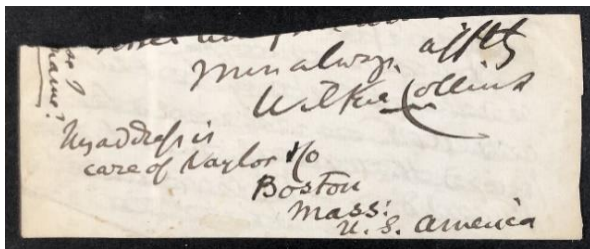 Yours always affty
Wilkie Collins
My address is
care of Naylor & Co
Boston
Mass:
U. S. America
name?